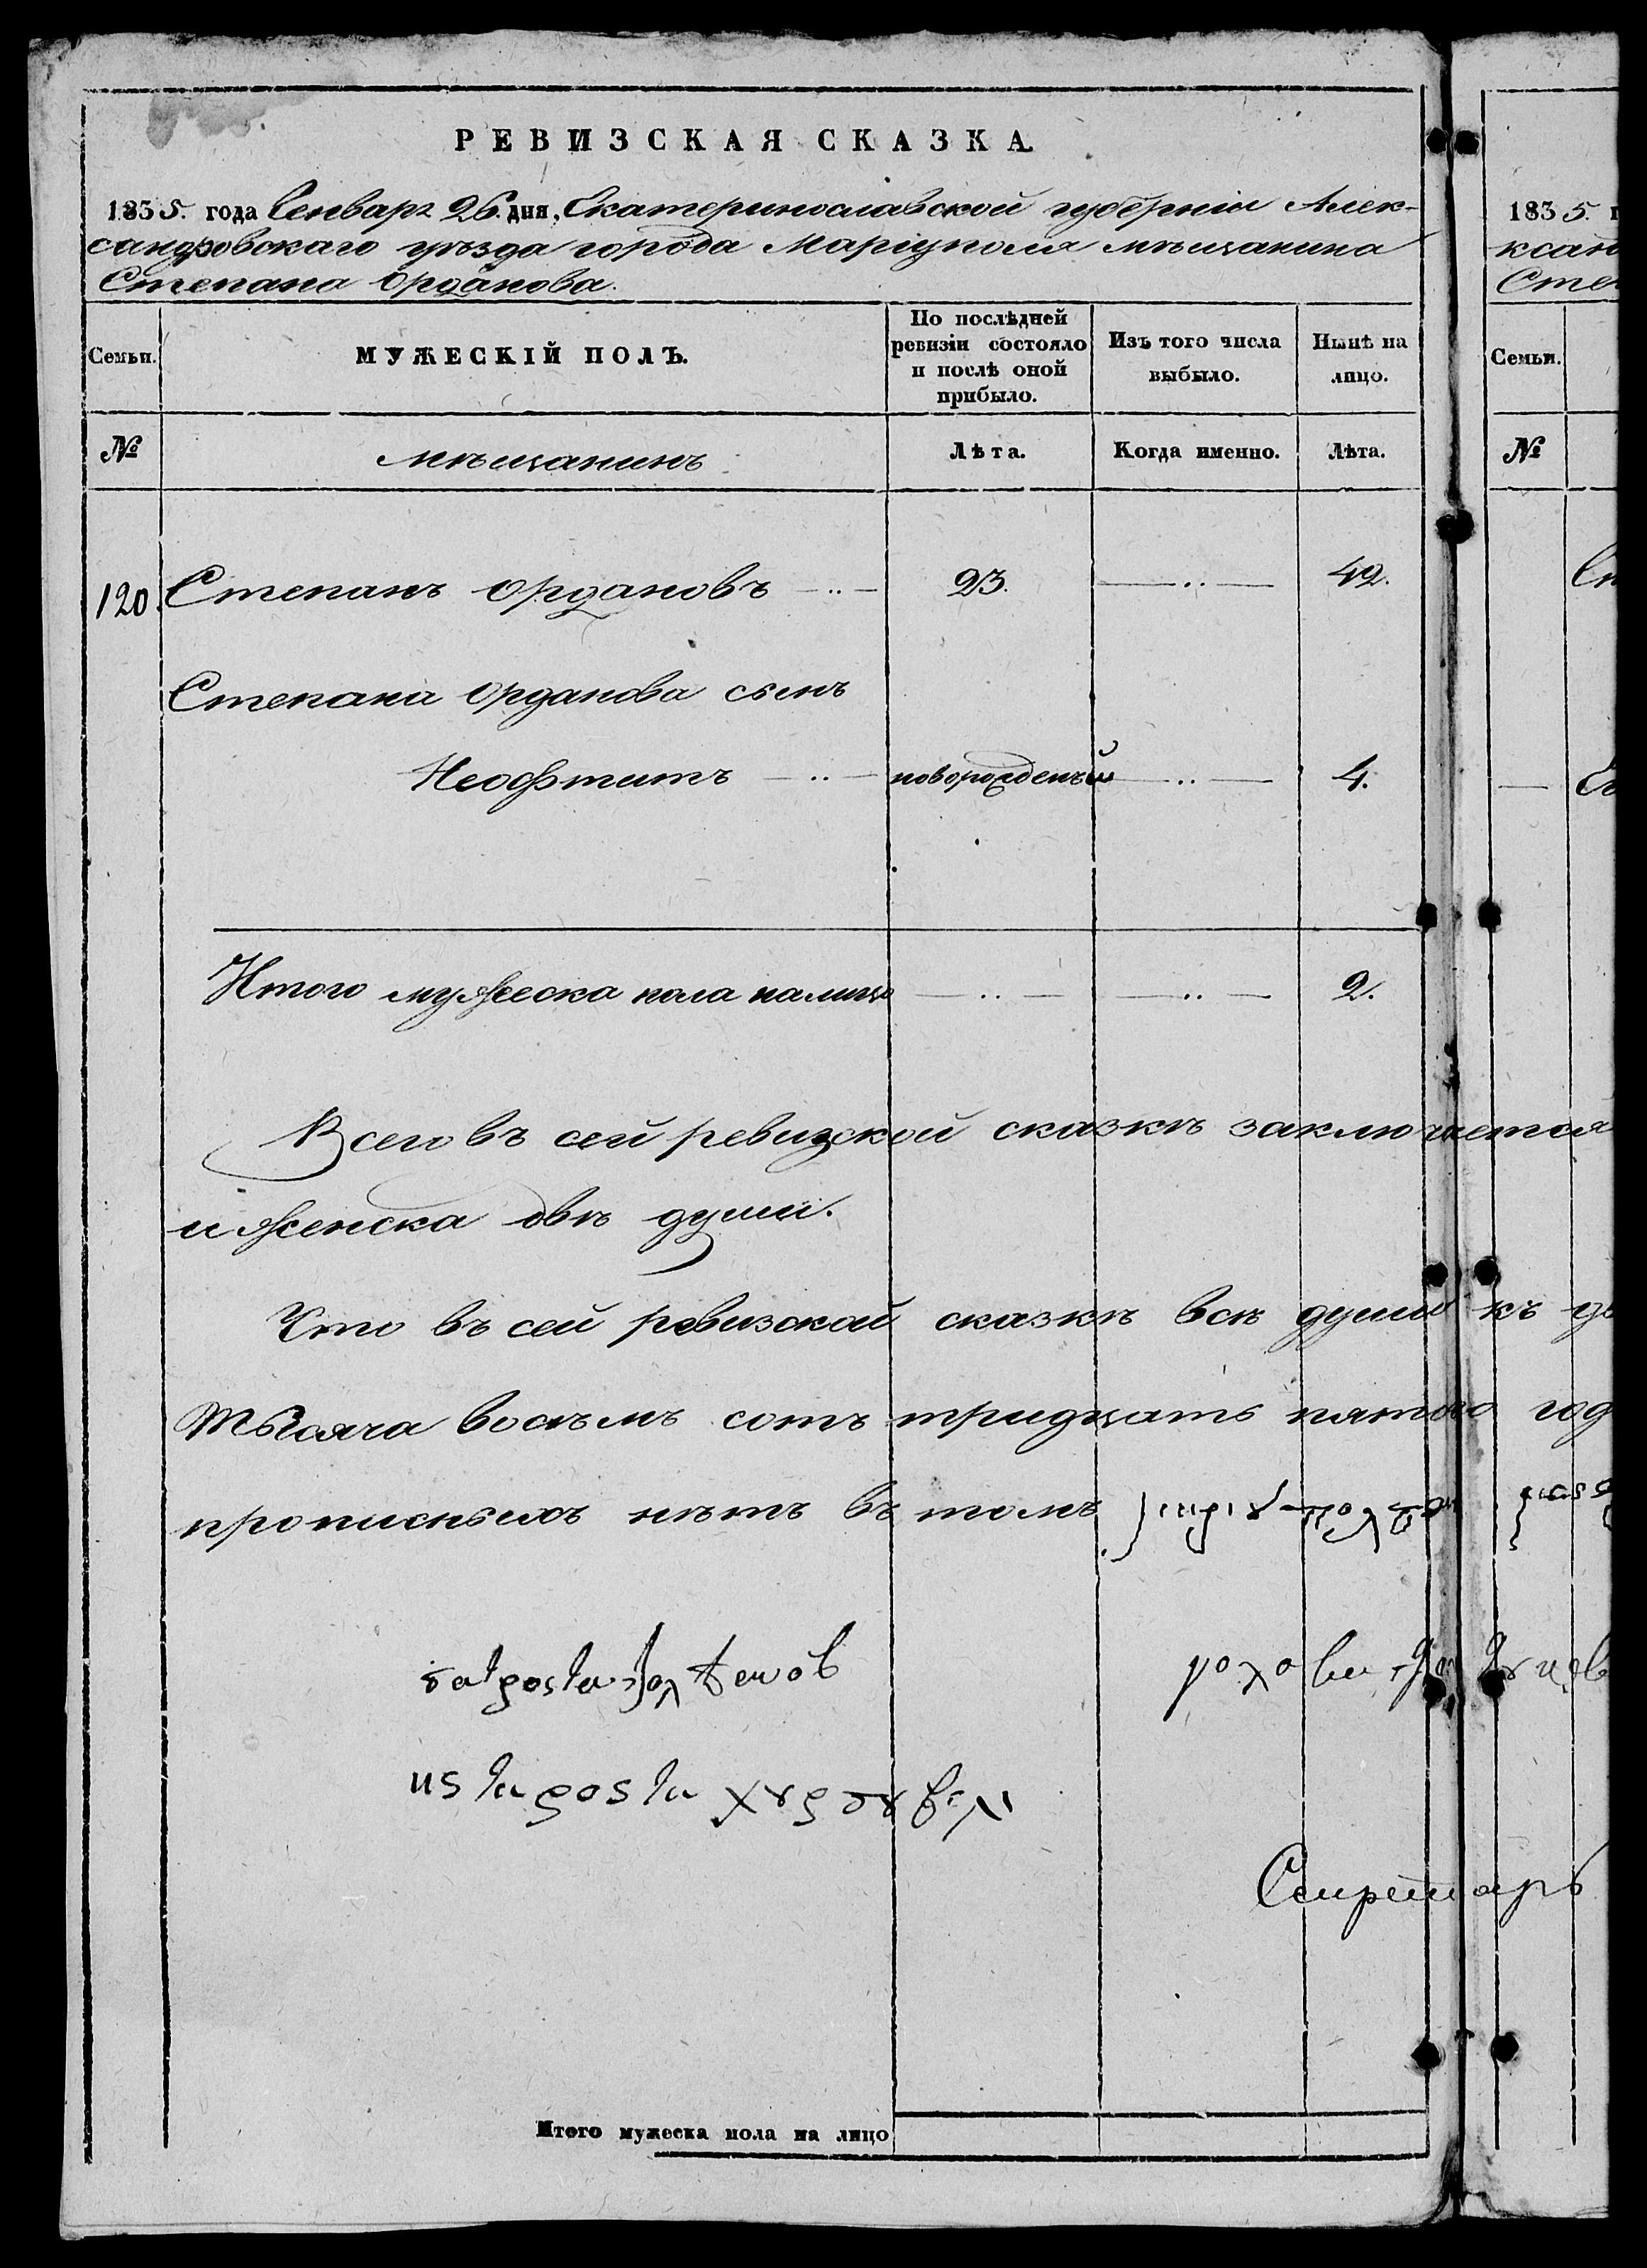 РЕВИЗСКАЯ СКАЗКА.
1835. года Генваря 26. дня, Екатеринославской губернiи Алек-
сандровскаго уѣзда города Марiуполя мѣщанина
Степана Орданова.
Семьи.
МУЖЕСКIЙ ПОЛЪ.
По послѣдней
ревизiи состояло
и послѣ оной
прибыло.
Изъ того числа
выбыло.
Нынѣ на
лицо.
№
мѣщанинъ
Лѣта.
Когда именно.
Лѣта.
120. Степанъ Ордановъ — .. — 23. — .. — 42.
Степана Орданова сынъ
Неофтитъ — .. — новорожденый — .. — 4.
Итого мужеска пола налицо — .. — — .. — 2.
Всего въ сей ревизской сказкѣ заключается
и женска двѣ души.
Что въ сей ревизской сказкѣ всѣ души къ
тысяча восемъ сотъ тридцать пятого год
прописныхъ нѣтъ въ томъ
Секретарь
Итого мужеска пола на лицо
1835.
ксан
Сте
Семьи.
№